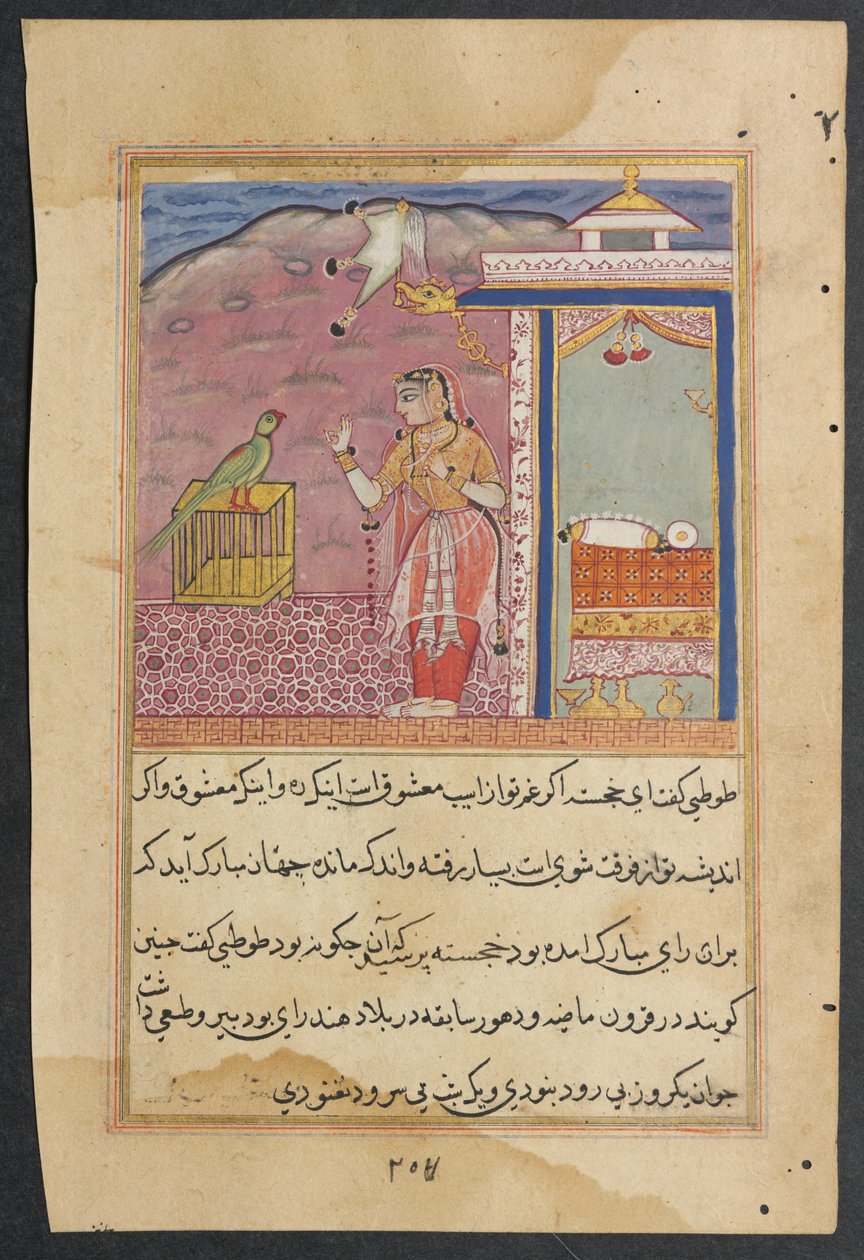 طوطي کفت اي خجسته اکر غم تو از اسیب معشوق است اینک ره و اینک معشوق و اکر
اندیشه تو از فرقت شوي است بسیار رفته و اندک مانده چهان مبارک آید که
بران راي مبارک امده بود خجسته پرسید که آن جکونه بود طوطي کفت جنین
کویند در قرون ماضیه و دهور سابقه در بلاد هند راي بود پیر و طبعي داشت
جوان یکروز بي رود بنودي و یک شب بي سرود نغنودي